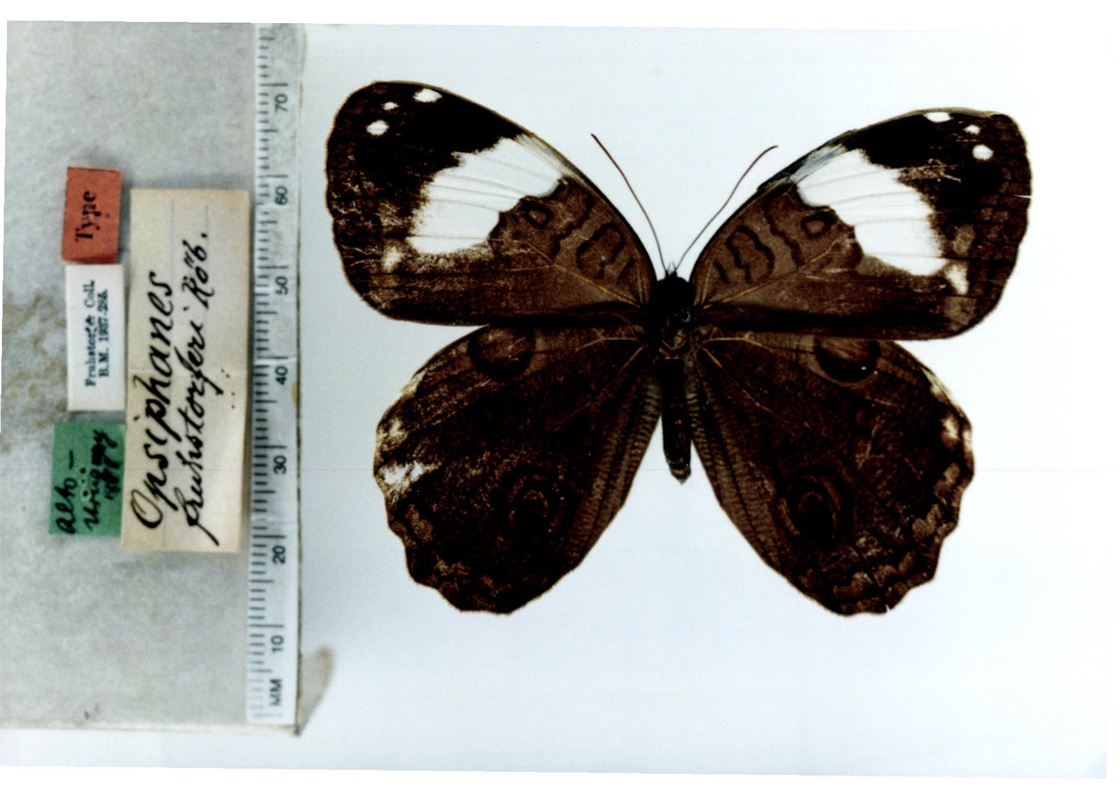 Type
Fruhstorfer Coll.
B.M. 1937-285.
Opsiphanes
fruhstorferi Röb.
70
60
50
40
30
20
10
MM